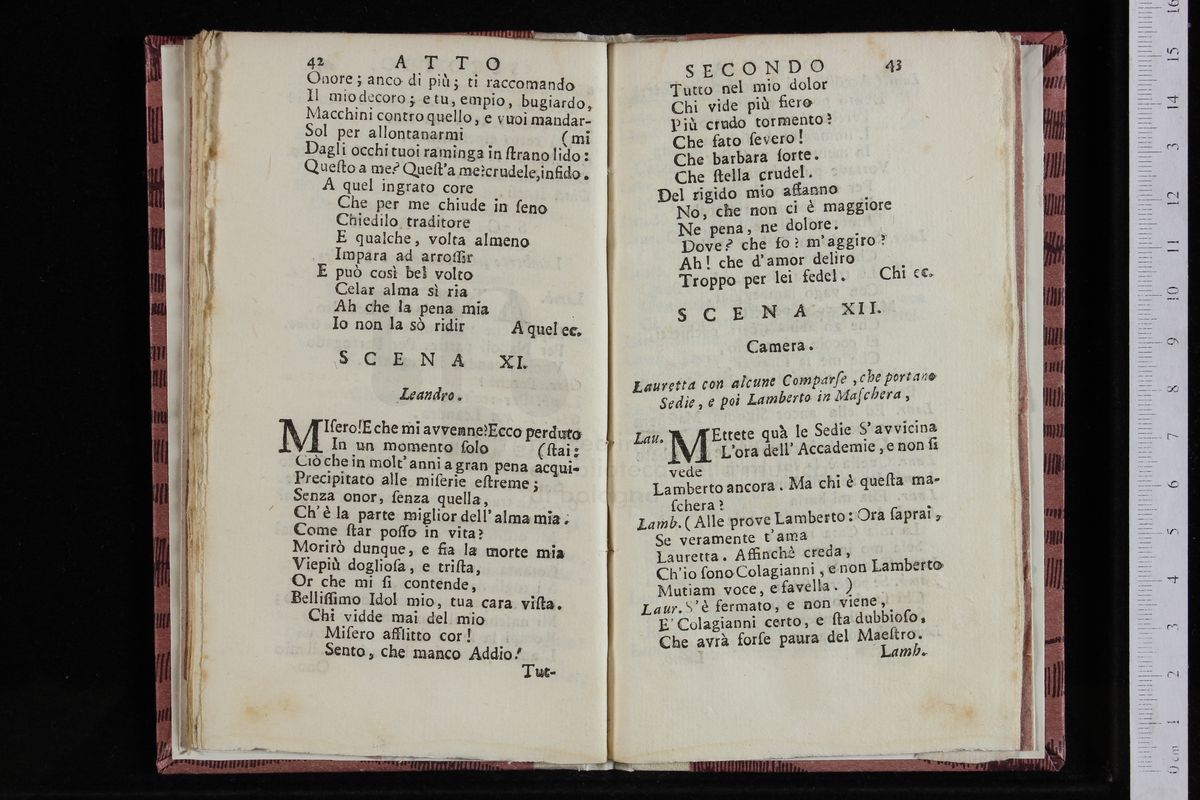 42 ATTO
Onore; anco di più; ti raccomando
Il mio decoro; e tu, empio, bugiardo,
Macchini contro quello, e vuoi mandar-
Sol per allontanarmi (mi
Dagli occhi tuoi raminga in ſtrano lido:
Queſto a me? Queſt'a me? crudele, infido.
A quel ingrato core
Che per me chiude in ſeno
Chiedilo traditore
E qualche, volta almeno
Impara ad arroſſir
E può così bel volto
Celar alma sì ria
Ah che la pena mia
Io non la sò ridir A quel ec.
SCENA XI.
Leandro.
MIſero! E che mi avvenne? Ecco perduto
In un momento ſolo (ſtai:
Ciò che in molt' anni a gran pena acqui-
Precipitato alle miſerie eſtreme;
Senza onor, ſenza quella,
Ch'è la parte miglior dell' alma mia.
Come ſtar poſſo in vita?
Morirò dunque, e fia la morte mia
Viepiù doglioſa, e triſta,
Or che mi ſi contende,
Belliſſimo Idol mio, tua cara viſta.
Chi vidde mai del mio
Miſero afflitto cor!
Sento, che manco Addio!
Tut-
SECONDO 43
Tutto nel mio dolor
Chi vide più fiero
Più crudo tormento?
Che fato ſevero!
Che barbara ſorte.
Che ſtella crudel.
Del rigido mio affanno
No, che non ci è maggiore
Ne pena, ne dolore.
Dove? che fo? m'aggiro?
Ah! che d'amor deliro
Troppo per lei fedel. Chi ec.
SCENA XII.
Camera.
Lauretta con alcune Comparſe, che portano
Sedie, e poi Lamberto in Maſchera,
Lau. MEttete quà le Sedie S'avvicina
L'ora dell' Accademie, e non ſi
vede
Lamberto ancora. Ma chi è queſta ma-
ſchera?
Lamb. (Alle prove Lamberto: Ora ſaprai,
Se veramente t'ama
Lauretta. Affinchè creda,
Ch'io ſono Colagianni, e non Lamberto
Mutiam voce, e favella.)
Laur. S'è fermato, e non viene,
E' Colagianni certo, e ſta dubbioſo,
Che avrà forſe paura del Maeſtro.
Lamb.